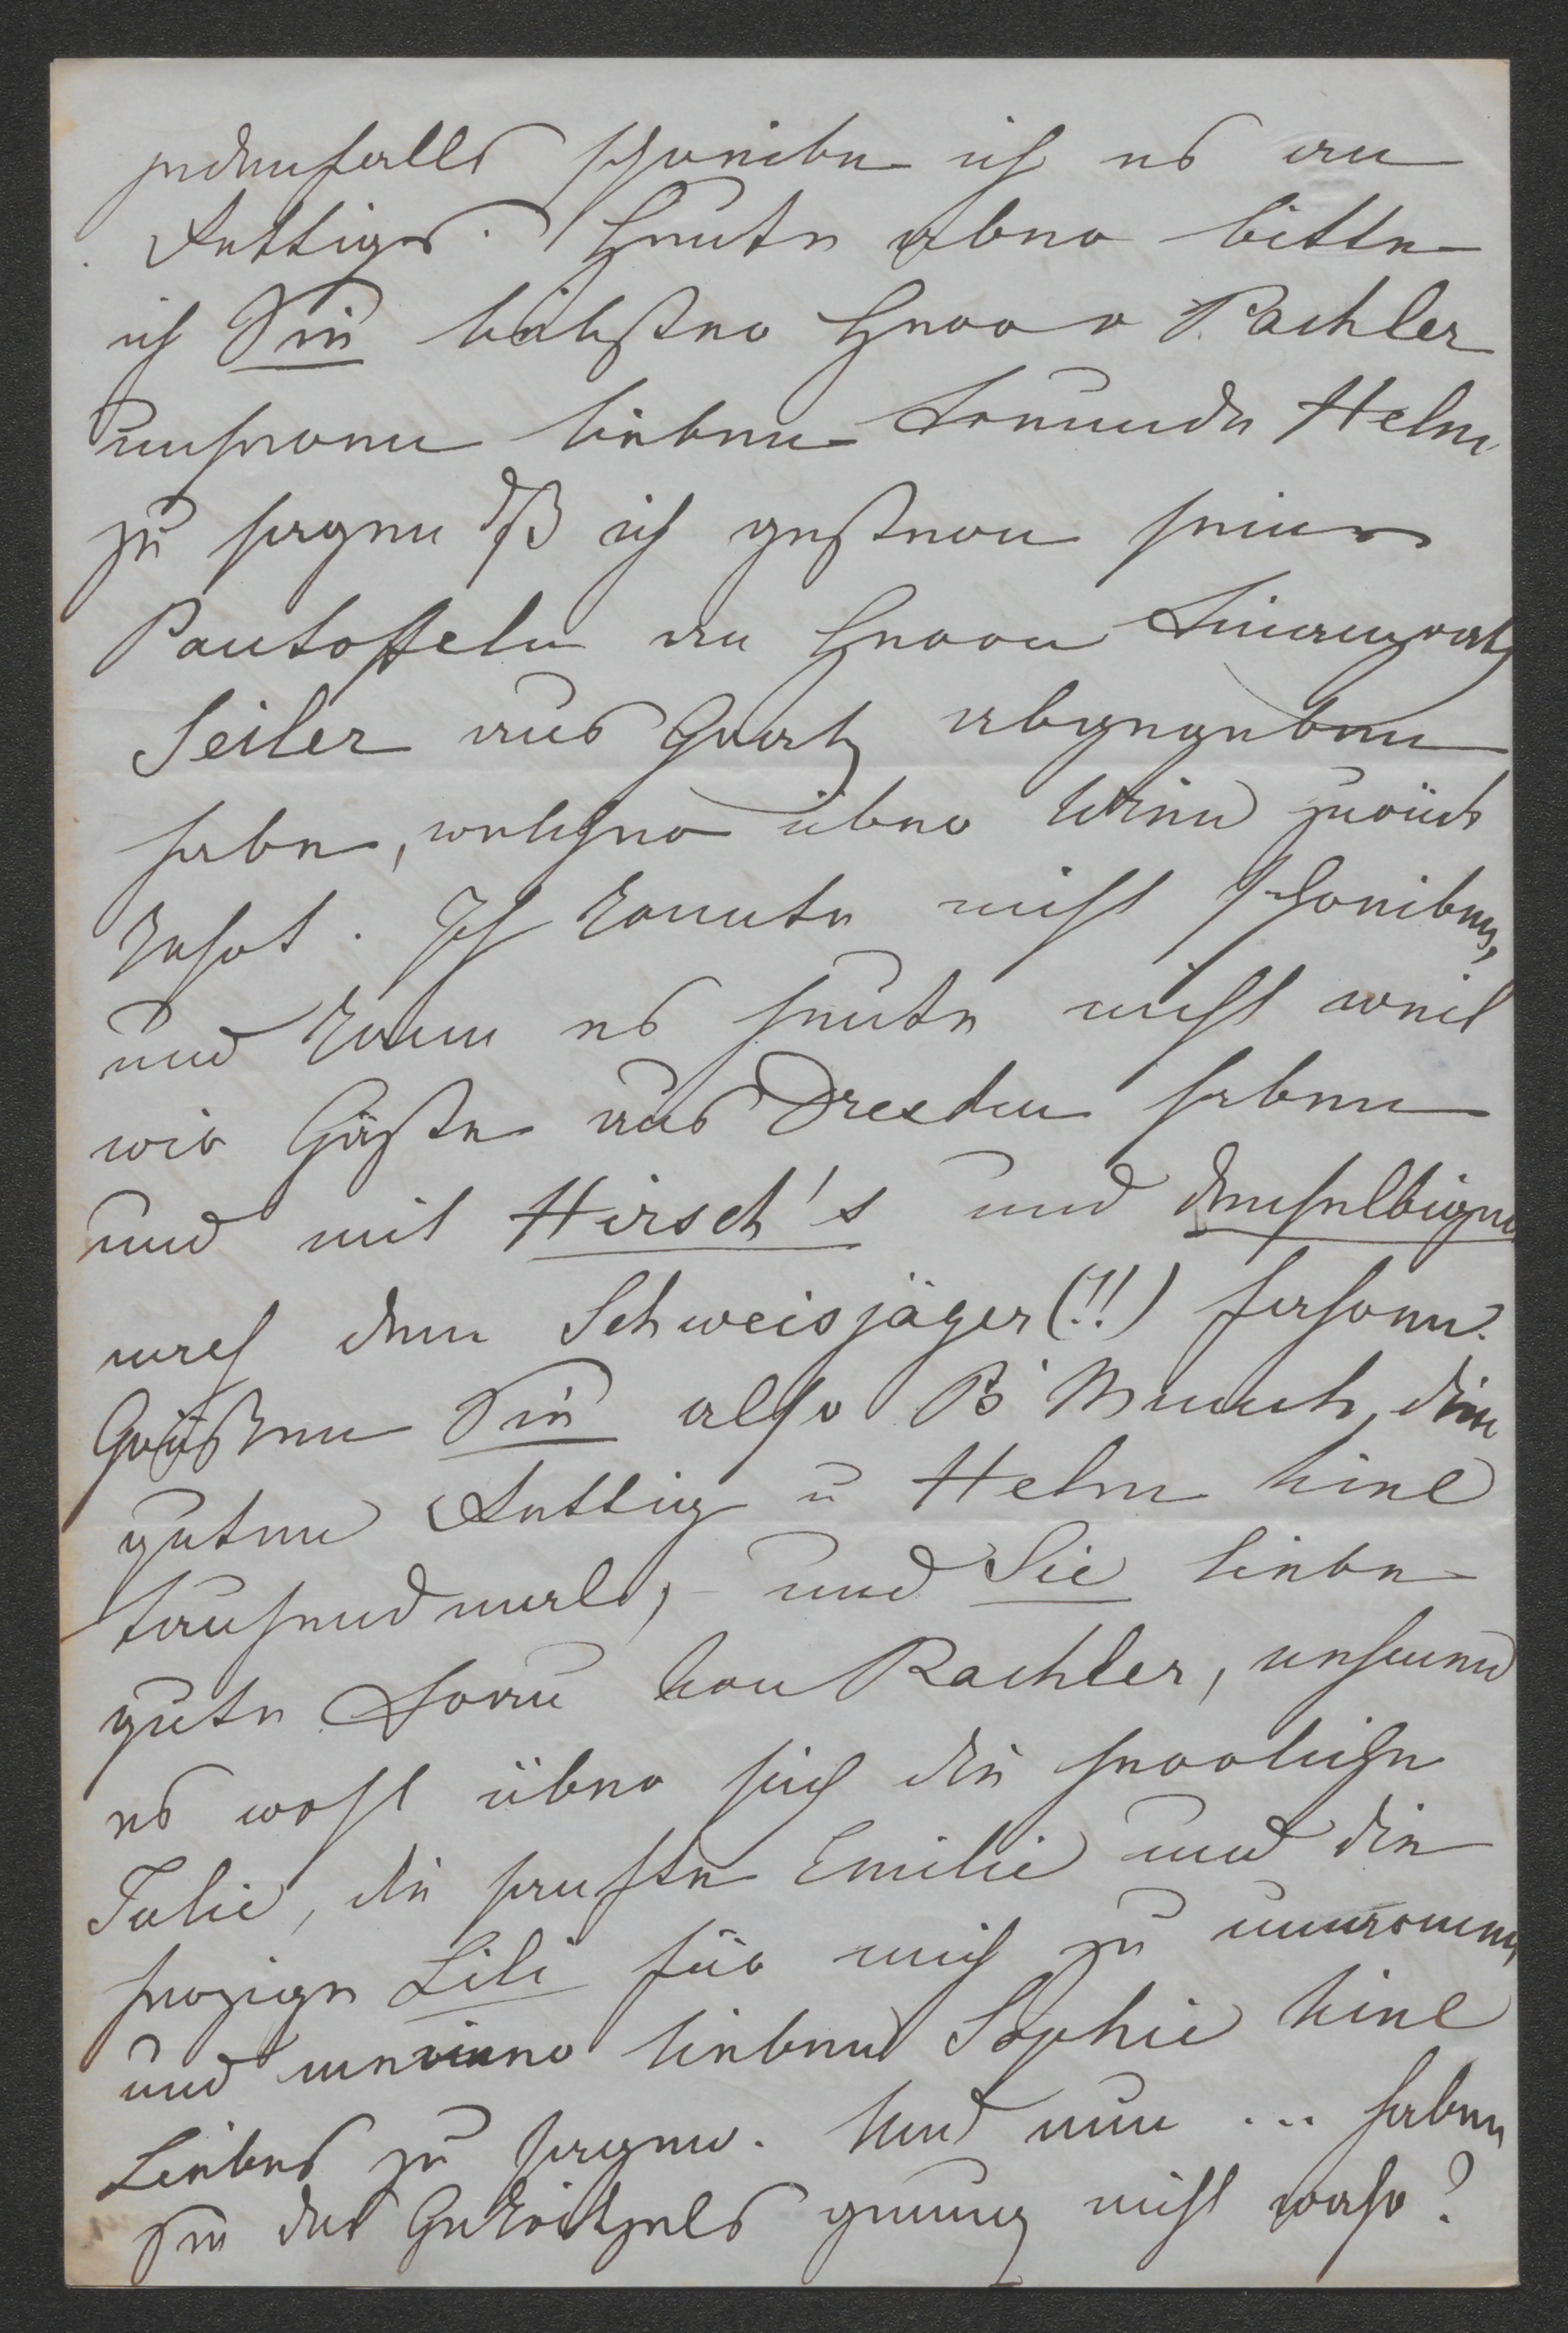 jedenfalls schreibe ich es an
Rettigs. Heute aber bitte
ich Sie liebster Herr v Pachler
unserem lieben Freunde Helm
zu sagen dß ich gestern seine
Pantoffeln an Herrn Finanzrath
Seiler aus Gratz abgegeben
habe, welcher über Wien zurück
kehrt. Ich konnte nicht schreiben,
und kann es heute nicht weil
wir Gäste aus Dresden haben
und mit Hirsch's und denselbigen
nach dem Schweisjäger (!!) fahren.
Grüßen Sie also B Munch, den
guten Rettig u Helm viel
tausendmals, und Sie liebe
gute Frau von Pachler, nehmen
es wohl über sich die herrliche
Julie, die sanfte Emilie und die
herzige Lili für mich zu umarmen,
und meiner lieben Sophie viel
Liebes zu sagen. Und nun ... haben
Sie des Gekritzels genug nicht wahr?